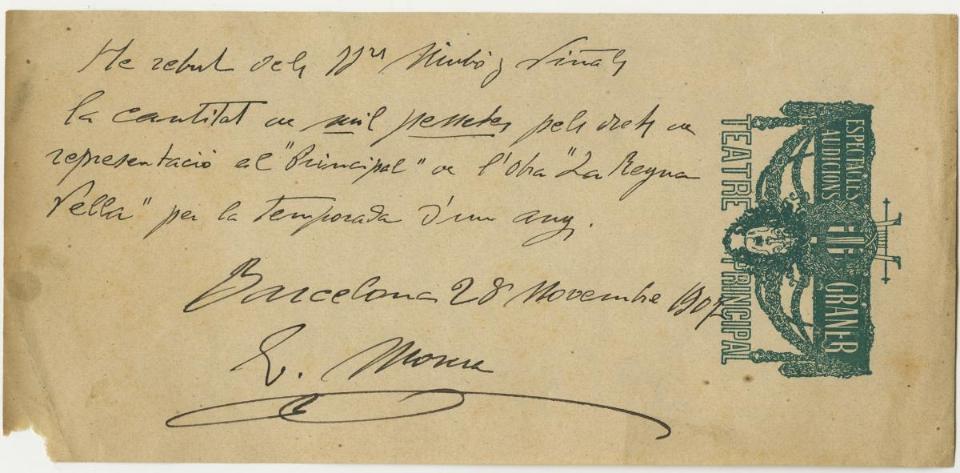 He rebut dels Srs Nimbó y Viñals
la cantitat de mil pessetes pels drets de
representació al "Principal" de l'obra "La Reyna
Vella" per la temporada d'un any.
Barcelona 28 Novembre 1907
E. Morera
ESPECTACLES
AUDICIONS
GRANER
TEATRE PRINCIPAL